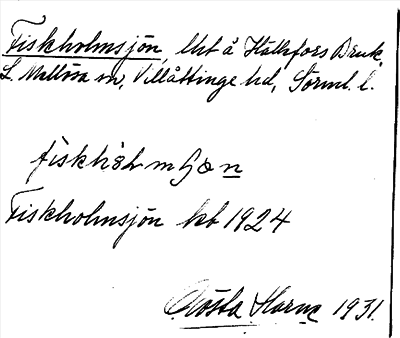 Fiskholmsjön, Uht å Hälleforsn Bruk,
L. Mellösa sn, Villåttinge hd, Sörml. l.
fiskhòlmʃǿn
Fiskholmsjön kb 1924
Gösta Harne 1931.